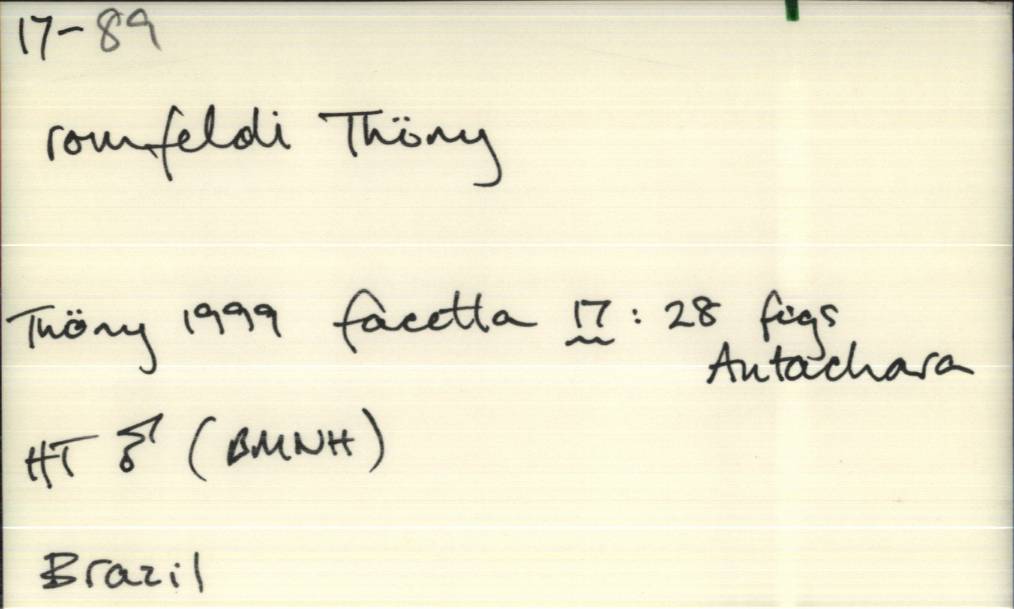 17-89
romfeldi Thöny
Thöny 1999 facetta 17 : 28 figs
Antachara
HT ♂ (BMNH)
Brazil